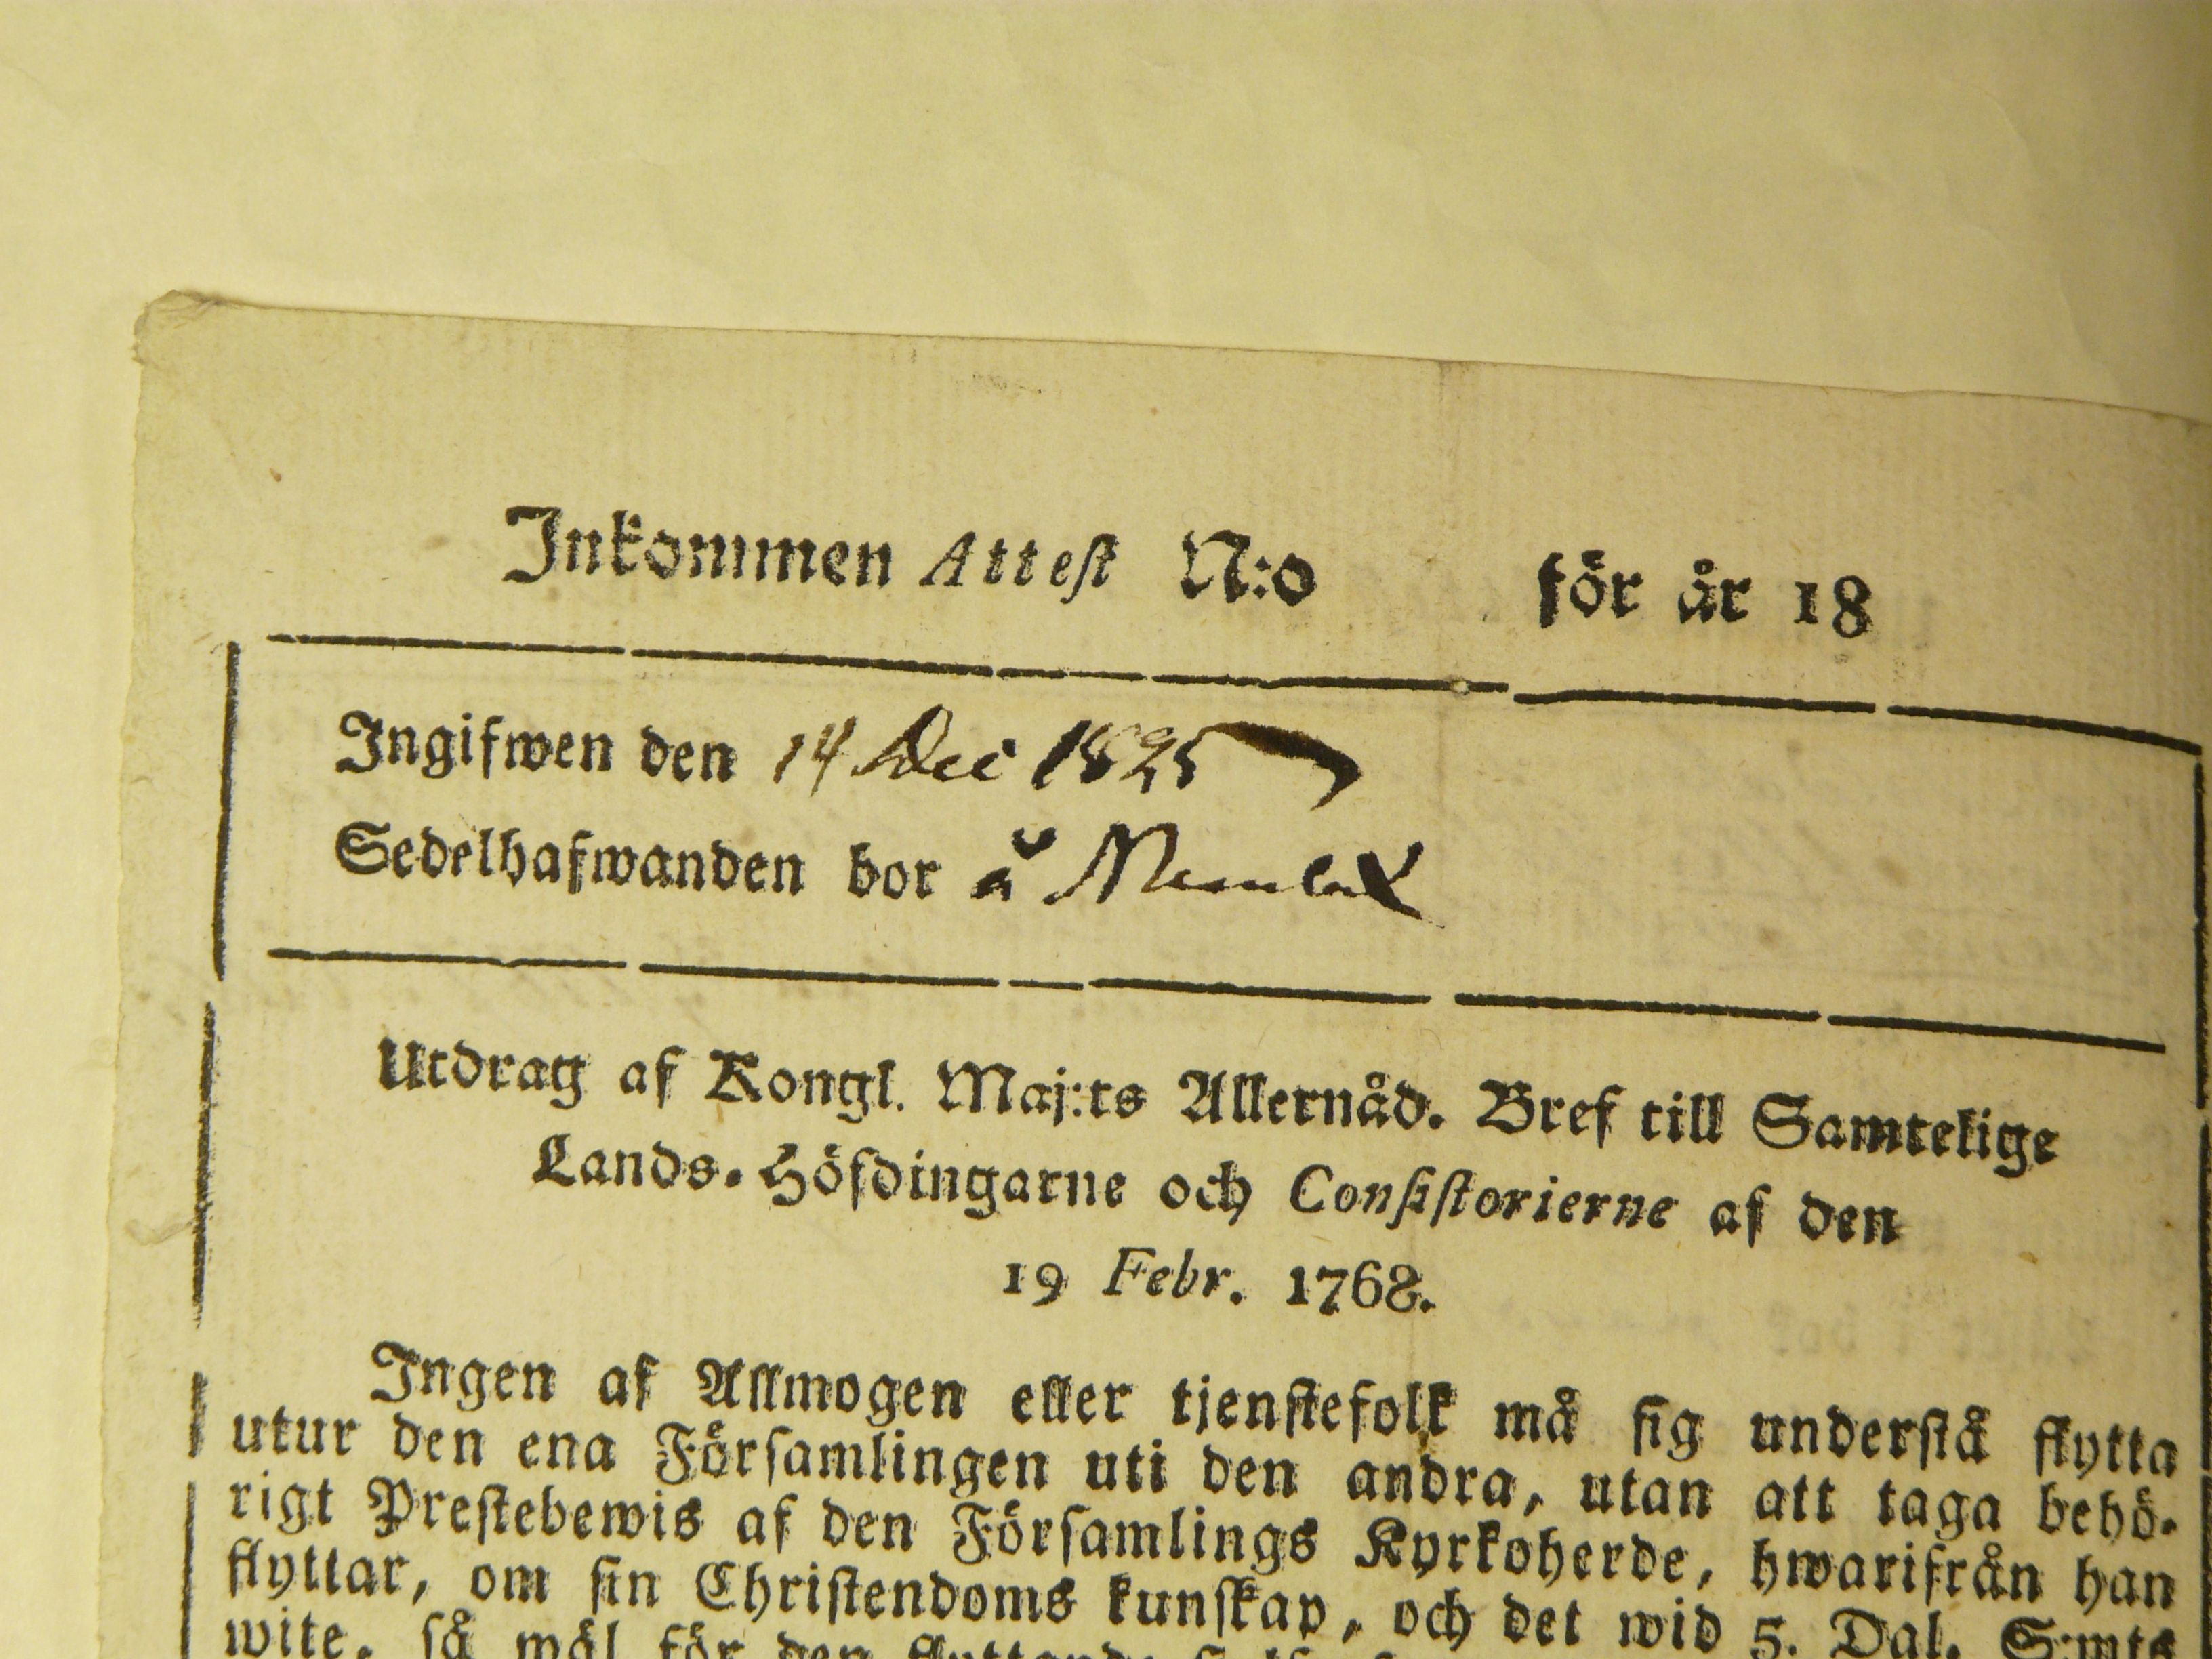 Inkommen Attest N:o för år 18
Ingifwen den 14 Dec 1825
Sedelhafwanden bor å
Utdrag af Kongl. Maj:ts Allernåd. Bref till Samtelige
Lands-Höfdingarne och Consistorierne af den
19 Febr. 1768.
Ingen af Allmogen eller tjenstefolk må sig understå flytta
utur den ena Församlingen uti den andra, utan att taga behö-
rigt Prestebewis af den Församlings Kyrkoherde, hwarifrån han
flyttar, om sin Christendoms kunskap, och det wid 5. Dal. S:mts
wite, så wäl för den